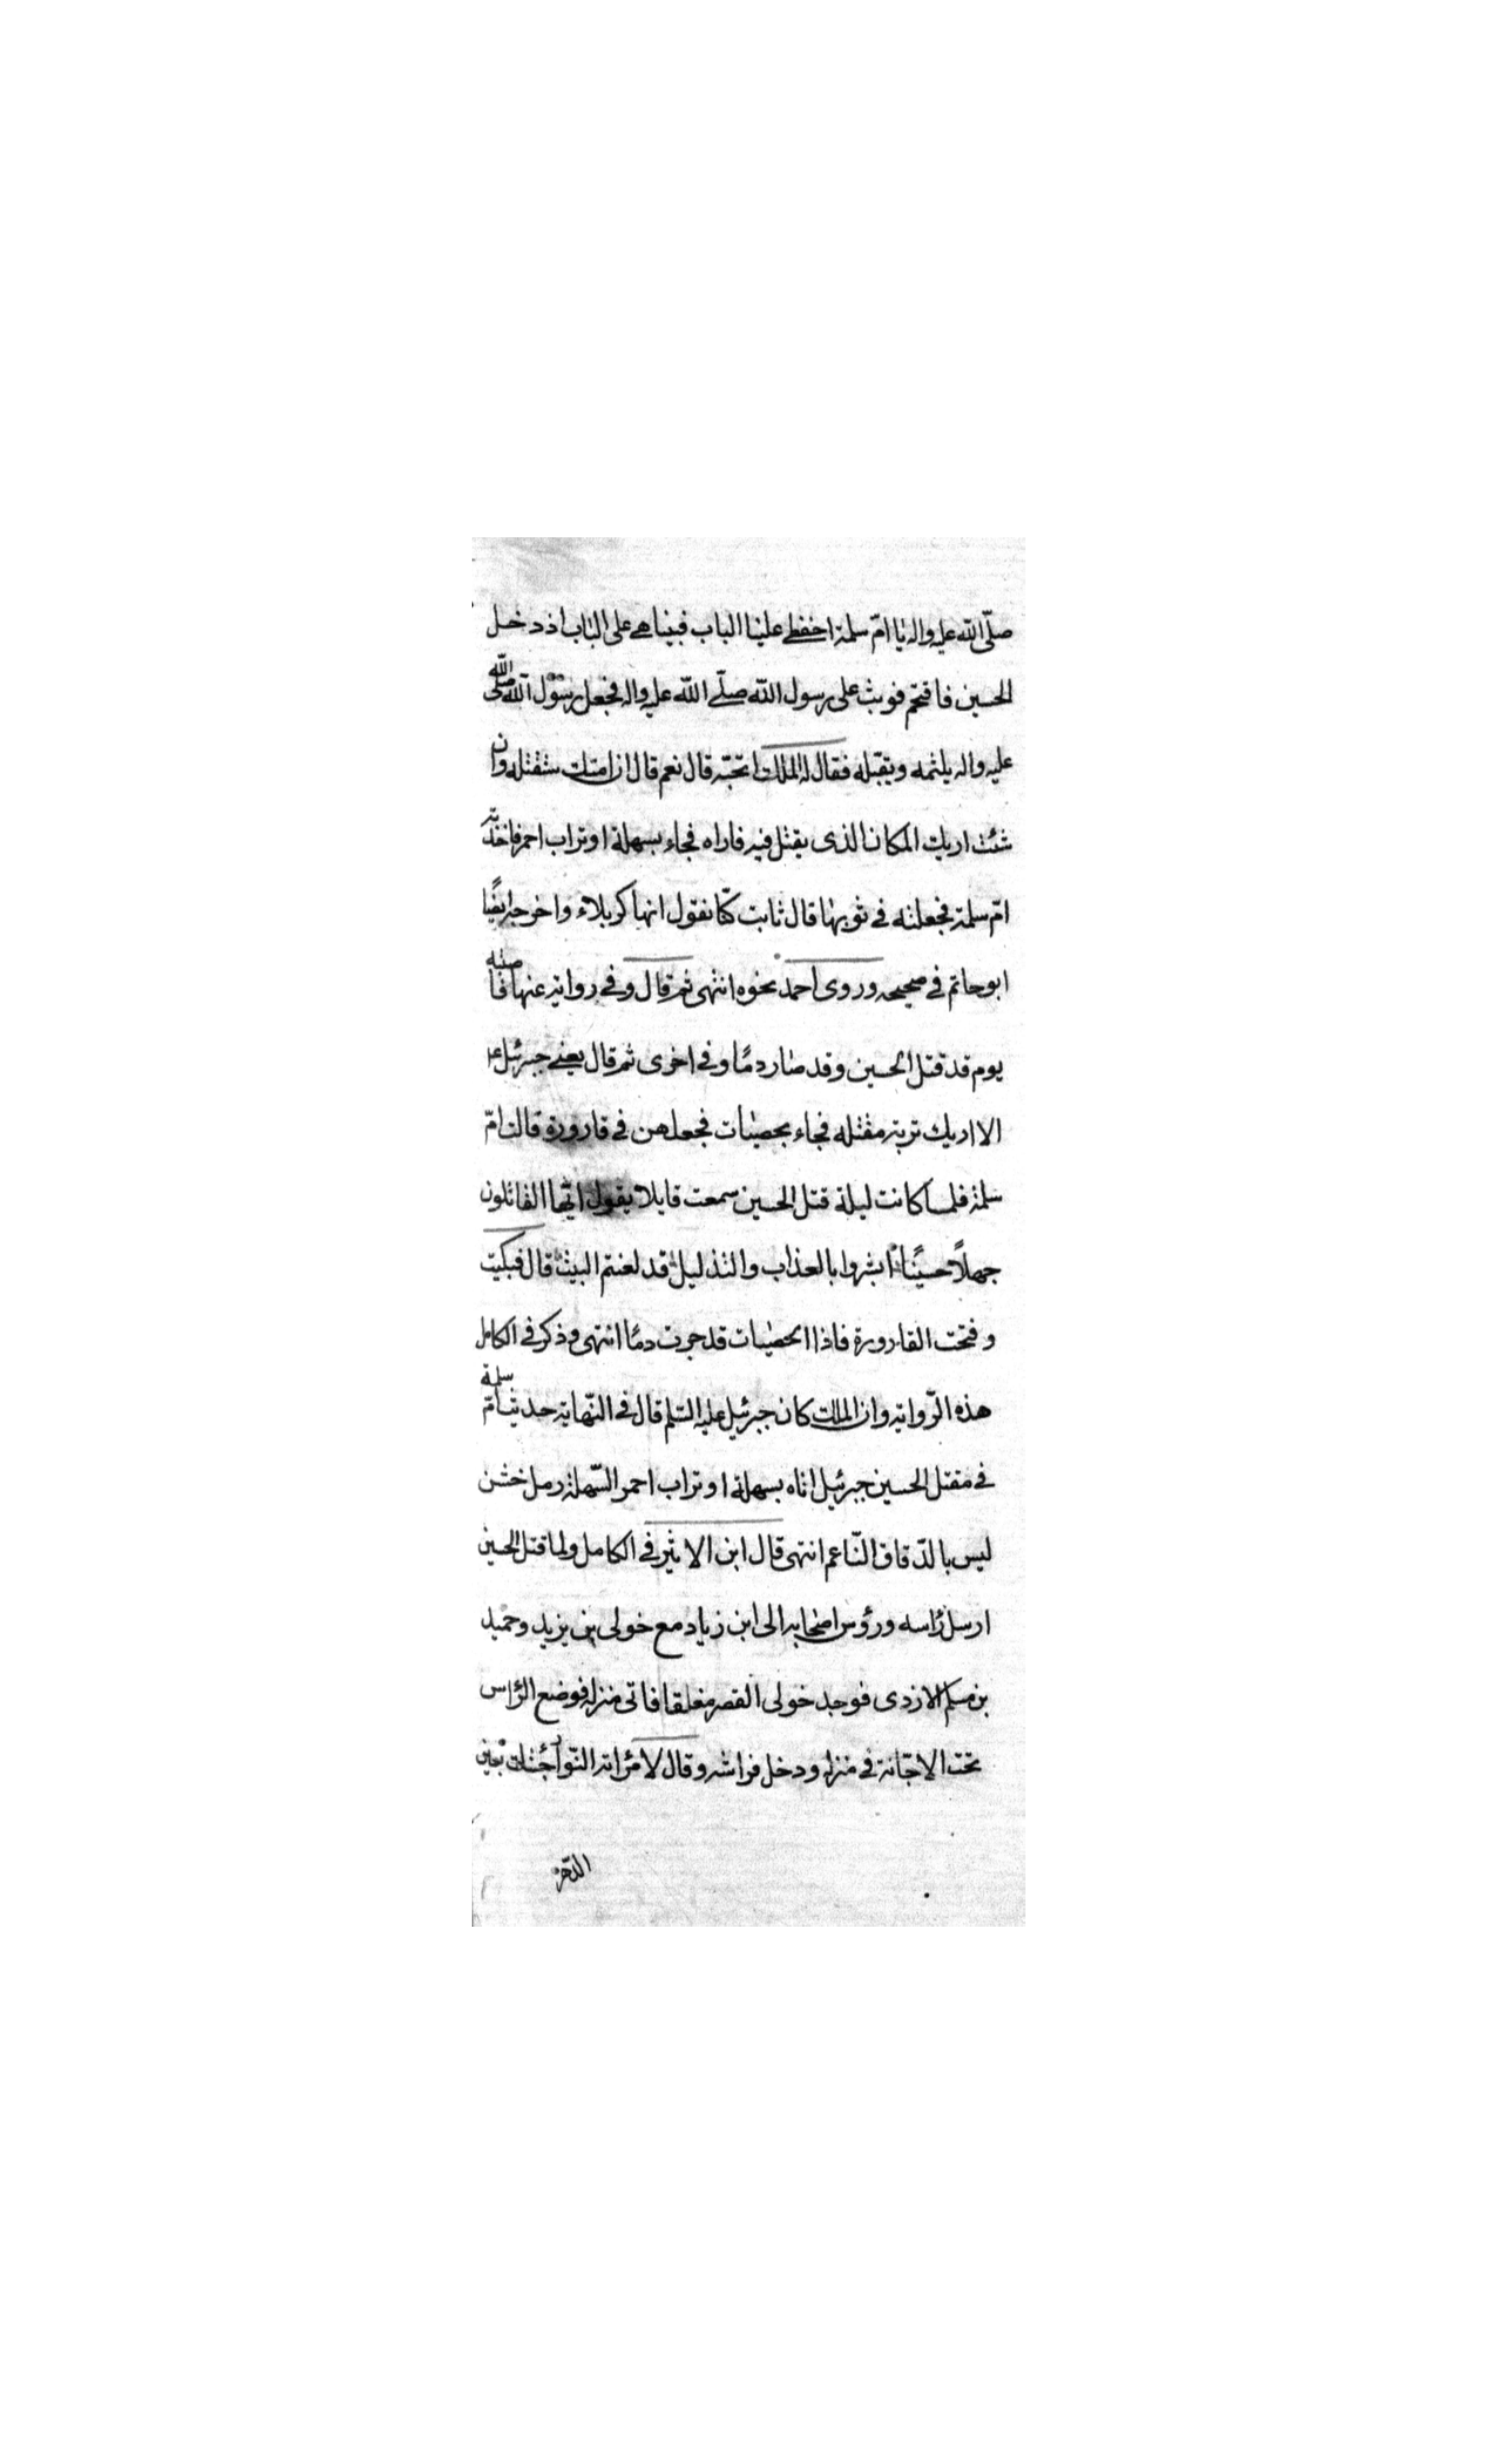 صلّى الله عليه واله يا امّ سلمة احفظى علينا الباب فبينا هى على الباب اذ دخل
الحسين فاقتحم فوثب على رسول الله صلّى الله عليه واله فجعل رسول الله صلّى الله
عليه واله يلثمه ويقبّله فقال له الملك اتحبّه قال نعم قال ان امتك ستقتله وان
شئت اريك المكان الذى يقتل فيه فاراه فجاء بسهلة او تراب احمر فاخذته
امّ سلمة فجعلته فى ثوبها قال ثابت كنّا نقول انها كربلاء واخرجه ايضًا
ابو حاتم فى صحيحه وروى احمد نحوه انتهى ثم قال وفى رواية عنها فاصبته
يوم قد قتل الحسين وقد صار دمًا وفى اخرى ثم قال يعنى جبرئيل ع
الا اريك تربة مقتله فجاء بحصيات فجعلهن فى قارورة قالت امّ
سلمة فلما كانت ليلة قتل الحسين سمعت قايلا يقول ايّها القاتلون
جهلًا حسينًا ابشروا بالعذاب والتذليل قد لعنتم البيت قال فبكيت
وفتحت القارورة فاذا الحصيات قد جرت دمًا انتهى وذكر فى الكامل
هذه الرّواية وان الملك كان جبرئيل عليه السّلم قال فى النّهاية حديث امّ سلمة
فى مقتل الحسين جبرئيل اتاه بسهلة او تراب احمر السّهلة رمل خشن
ليس بالدّقاق النّاعم انتهى قال ابن الاثير فى الكامل ولما قتل الحسين
ارسل راسه ورؤس اصحابه الى ابن زياد مع خولى بن يزيد وحميد
بن مسلم الازدى فوجد خولى القصر مغلقا فاتى منزله فوضع الرّاس
تحت الاجّانة فى منزله ودخل فراشه وقال لامراته النّوار جئتك بغنى
الدّهر